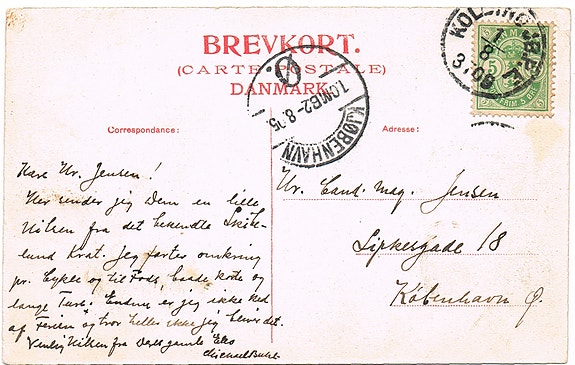 BREVKORT.
(CARTE POSTALE)
DANMARK.
KOLDING
1/8
3-
KJØBENHAVN
Ø.
1.OMB
2-8.05
DANMARK
5
5
FRIM. 5 ØRE
Correspondance:
Adresse:
Kære Hr. Jensen!
Her sender jeg Dem en lille
Hilsen fra det bekendte
lund Krat. Jeg farter omkring
pr. Cykle og til Fods, baade korte og
lange Ture. Endnu er jeg ikke ked
af Ferien og tror heller ikke jeg bliver det.
Venlig Hilsen fra Deres gamle Elev
Michael
Hr. Cand. mag. Jensen
Lipkesgade 18
København Ø.